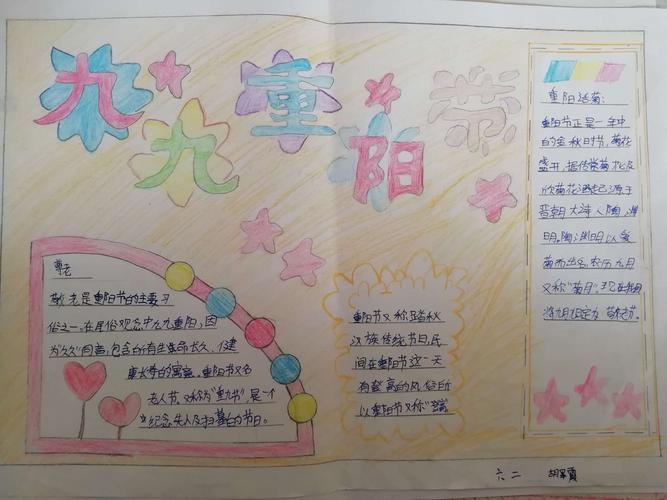 九九重阳节
尊老
敬老是重阳节的主要习
俗之一,在民俗观念中九九重阳,因
为"久久"同音,包含的有生命长久、健
康长寿的寓意。重阳节又名
老人节,又称为"重九节",是一个
纪念先人及扫墓的节日。
重阳节又称踏秋
汉族传统节日,民
间在重阳节这一天
有登高的风俗所
以重阳节又称"
重阳活菊:
重阳节正是一年中
的金秋时节,菊花
盛开,据传赏菊
欣菊花酒起源于
晋朝大诗人陶渊
明。陶渊明以爱
菊而出名,农历九月
又称"菊月",现在
将九月九定为 敬老节。
六二 胡